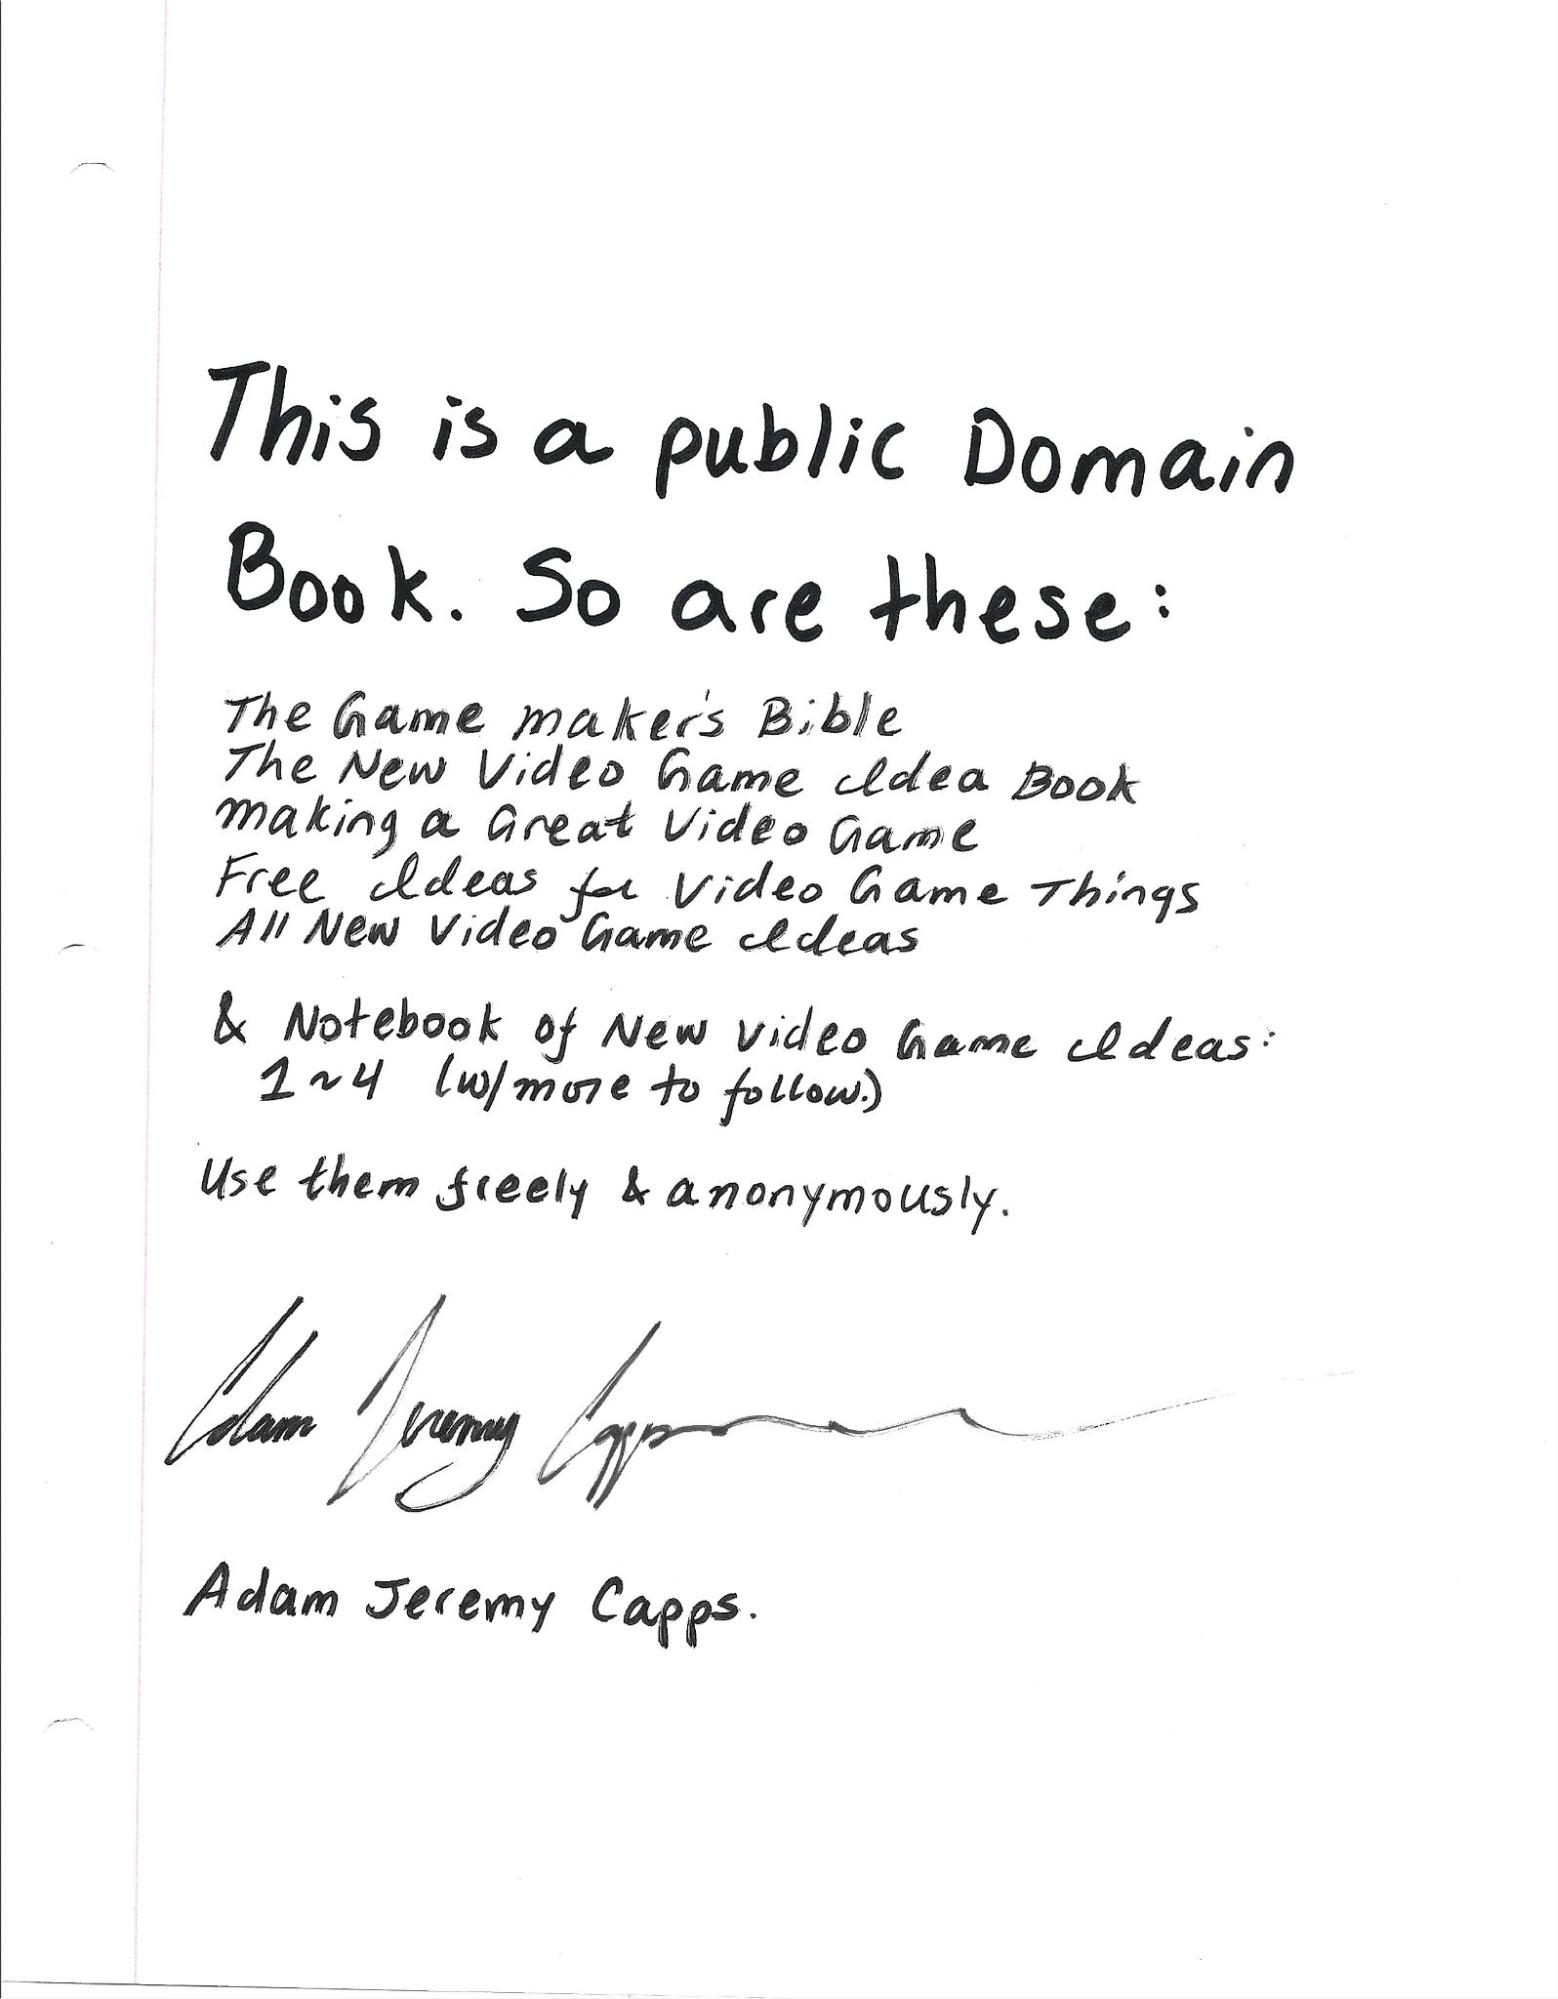 This is a public Domain
Book. So are these:
The Game maker's Bible
The New Video Game Idea Book
making a Great Video Game
Free Ideas for Video Game Things
All New Video Game Ideas
& Notebook of New Video Game Ideas:
1~4 (w/more to follow.)
Use them freely & anonymously.
Adam Jeremy Capps
Adam Jeremy Capps.